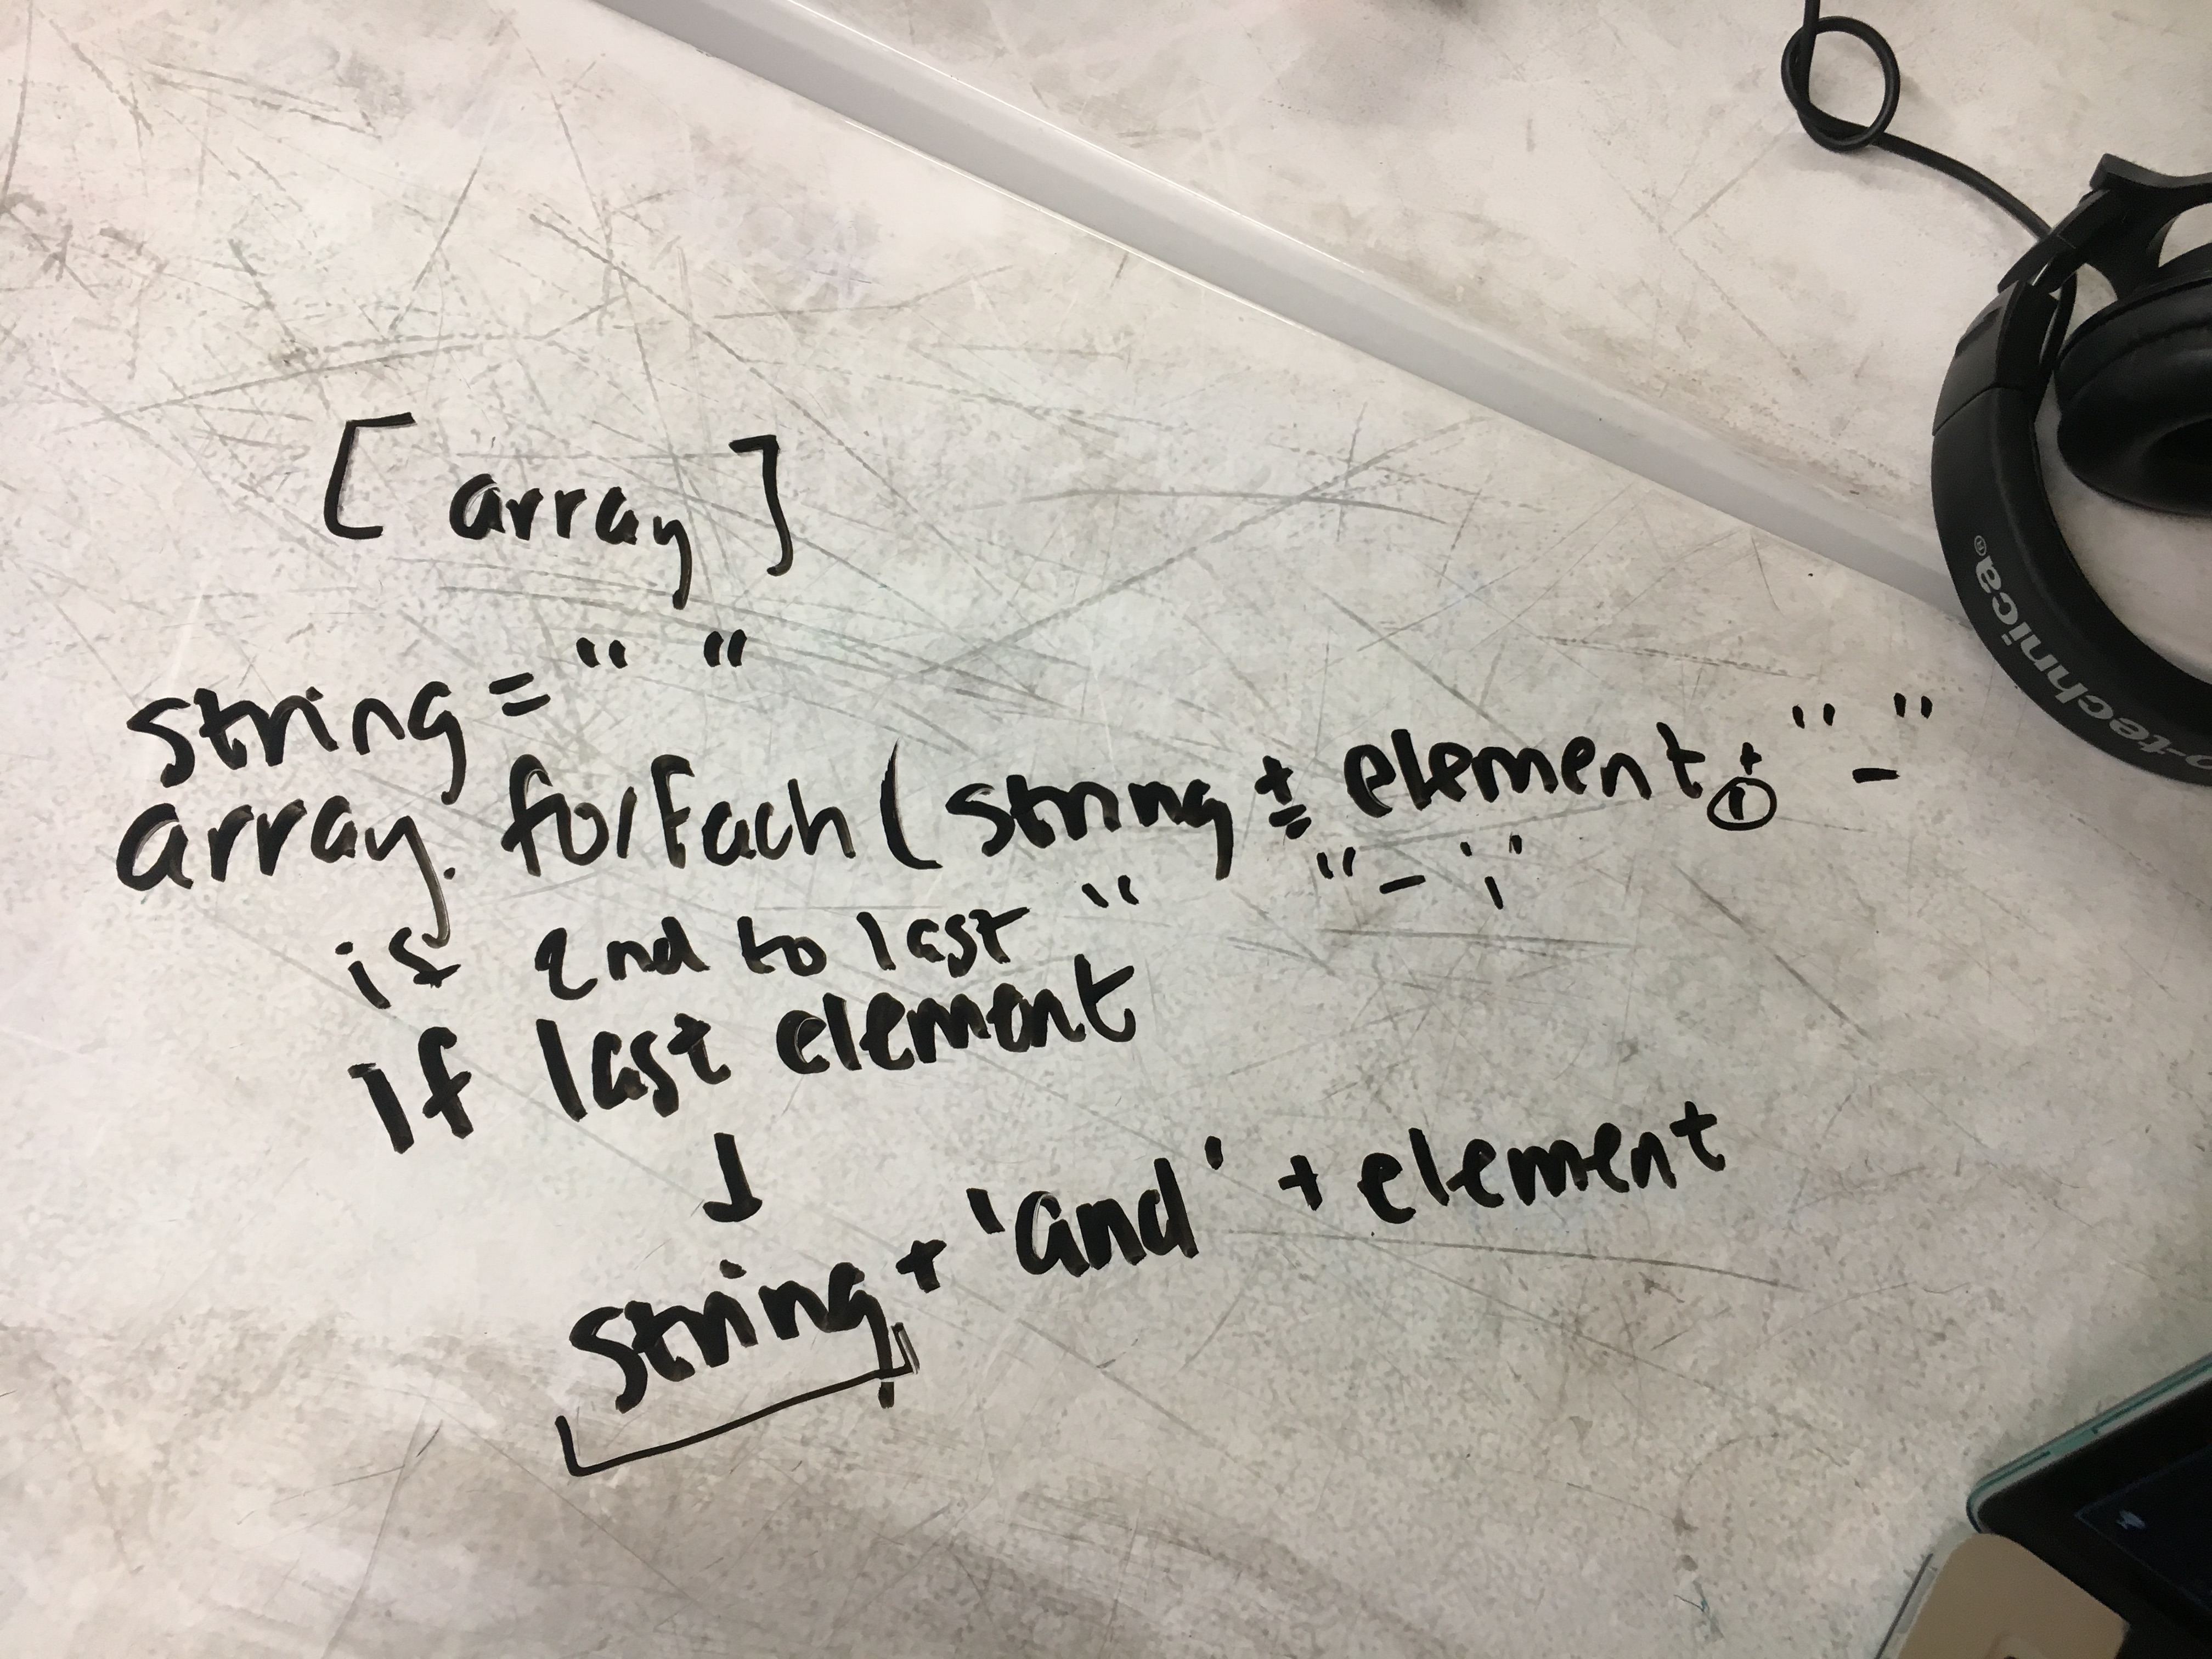 [ array ]
string = " "
array. forEach ( string += element + " - "
1st 2nd to last " " - , "
If last element
string + 'and' + element
o-technica®